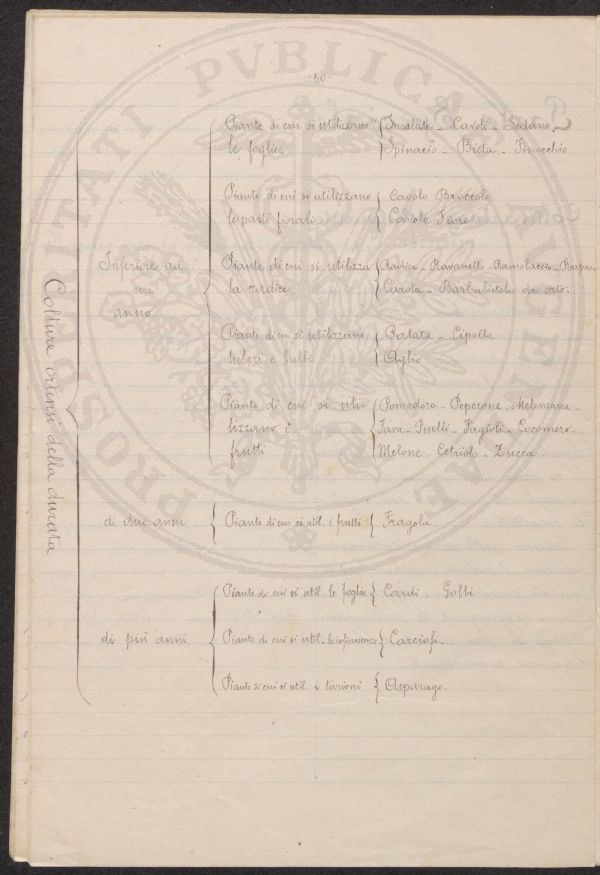 -50-
Colture ortensi della durata
Inferiore ad
un
anno
Piante di cui si utilizzano
le foglie.
Insalate - Cavoli - Sedano -
Spinacio - Bieta - Finocchio
Piante di cui si utilizzano
le parti fiorali
Cavolo Broccolo
Cavolo Fiore
Piante di cui si utilizza
la radice
Radice - Ravanelli - Ramolaccio - Rapa -
Carota - Barbabietola da orto.
Piante di cui si utilizzano
tuberi e bulbi
Patata - Cipolla
Aglio
Piante di cui si uti-
lizzano i
frutti
Pomodoro - Peperone - Melanzana -
Fava - Piselli - Fagioli - Cocomero -
Melone - Cetriolo - Zucca.
di due anni
Piante di cui si util. i frutti
Fragola.
di più anni
Piante di cui si util. le foglie
Cardi - Gobbi
Piante di cui si util. le infiorescenze
Carciofi.
Piante di cui si util. i turioni
Asparago.
PROSPERITATI PVBLICAE